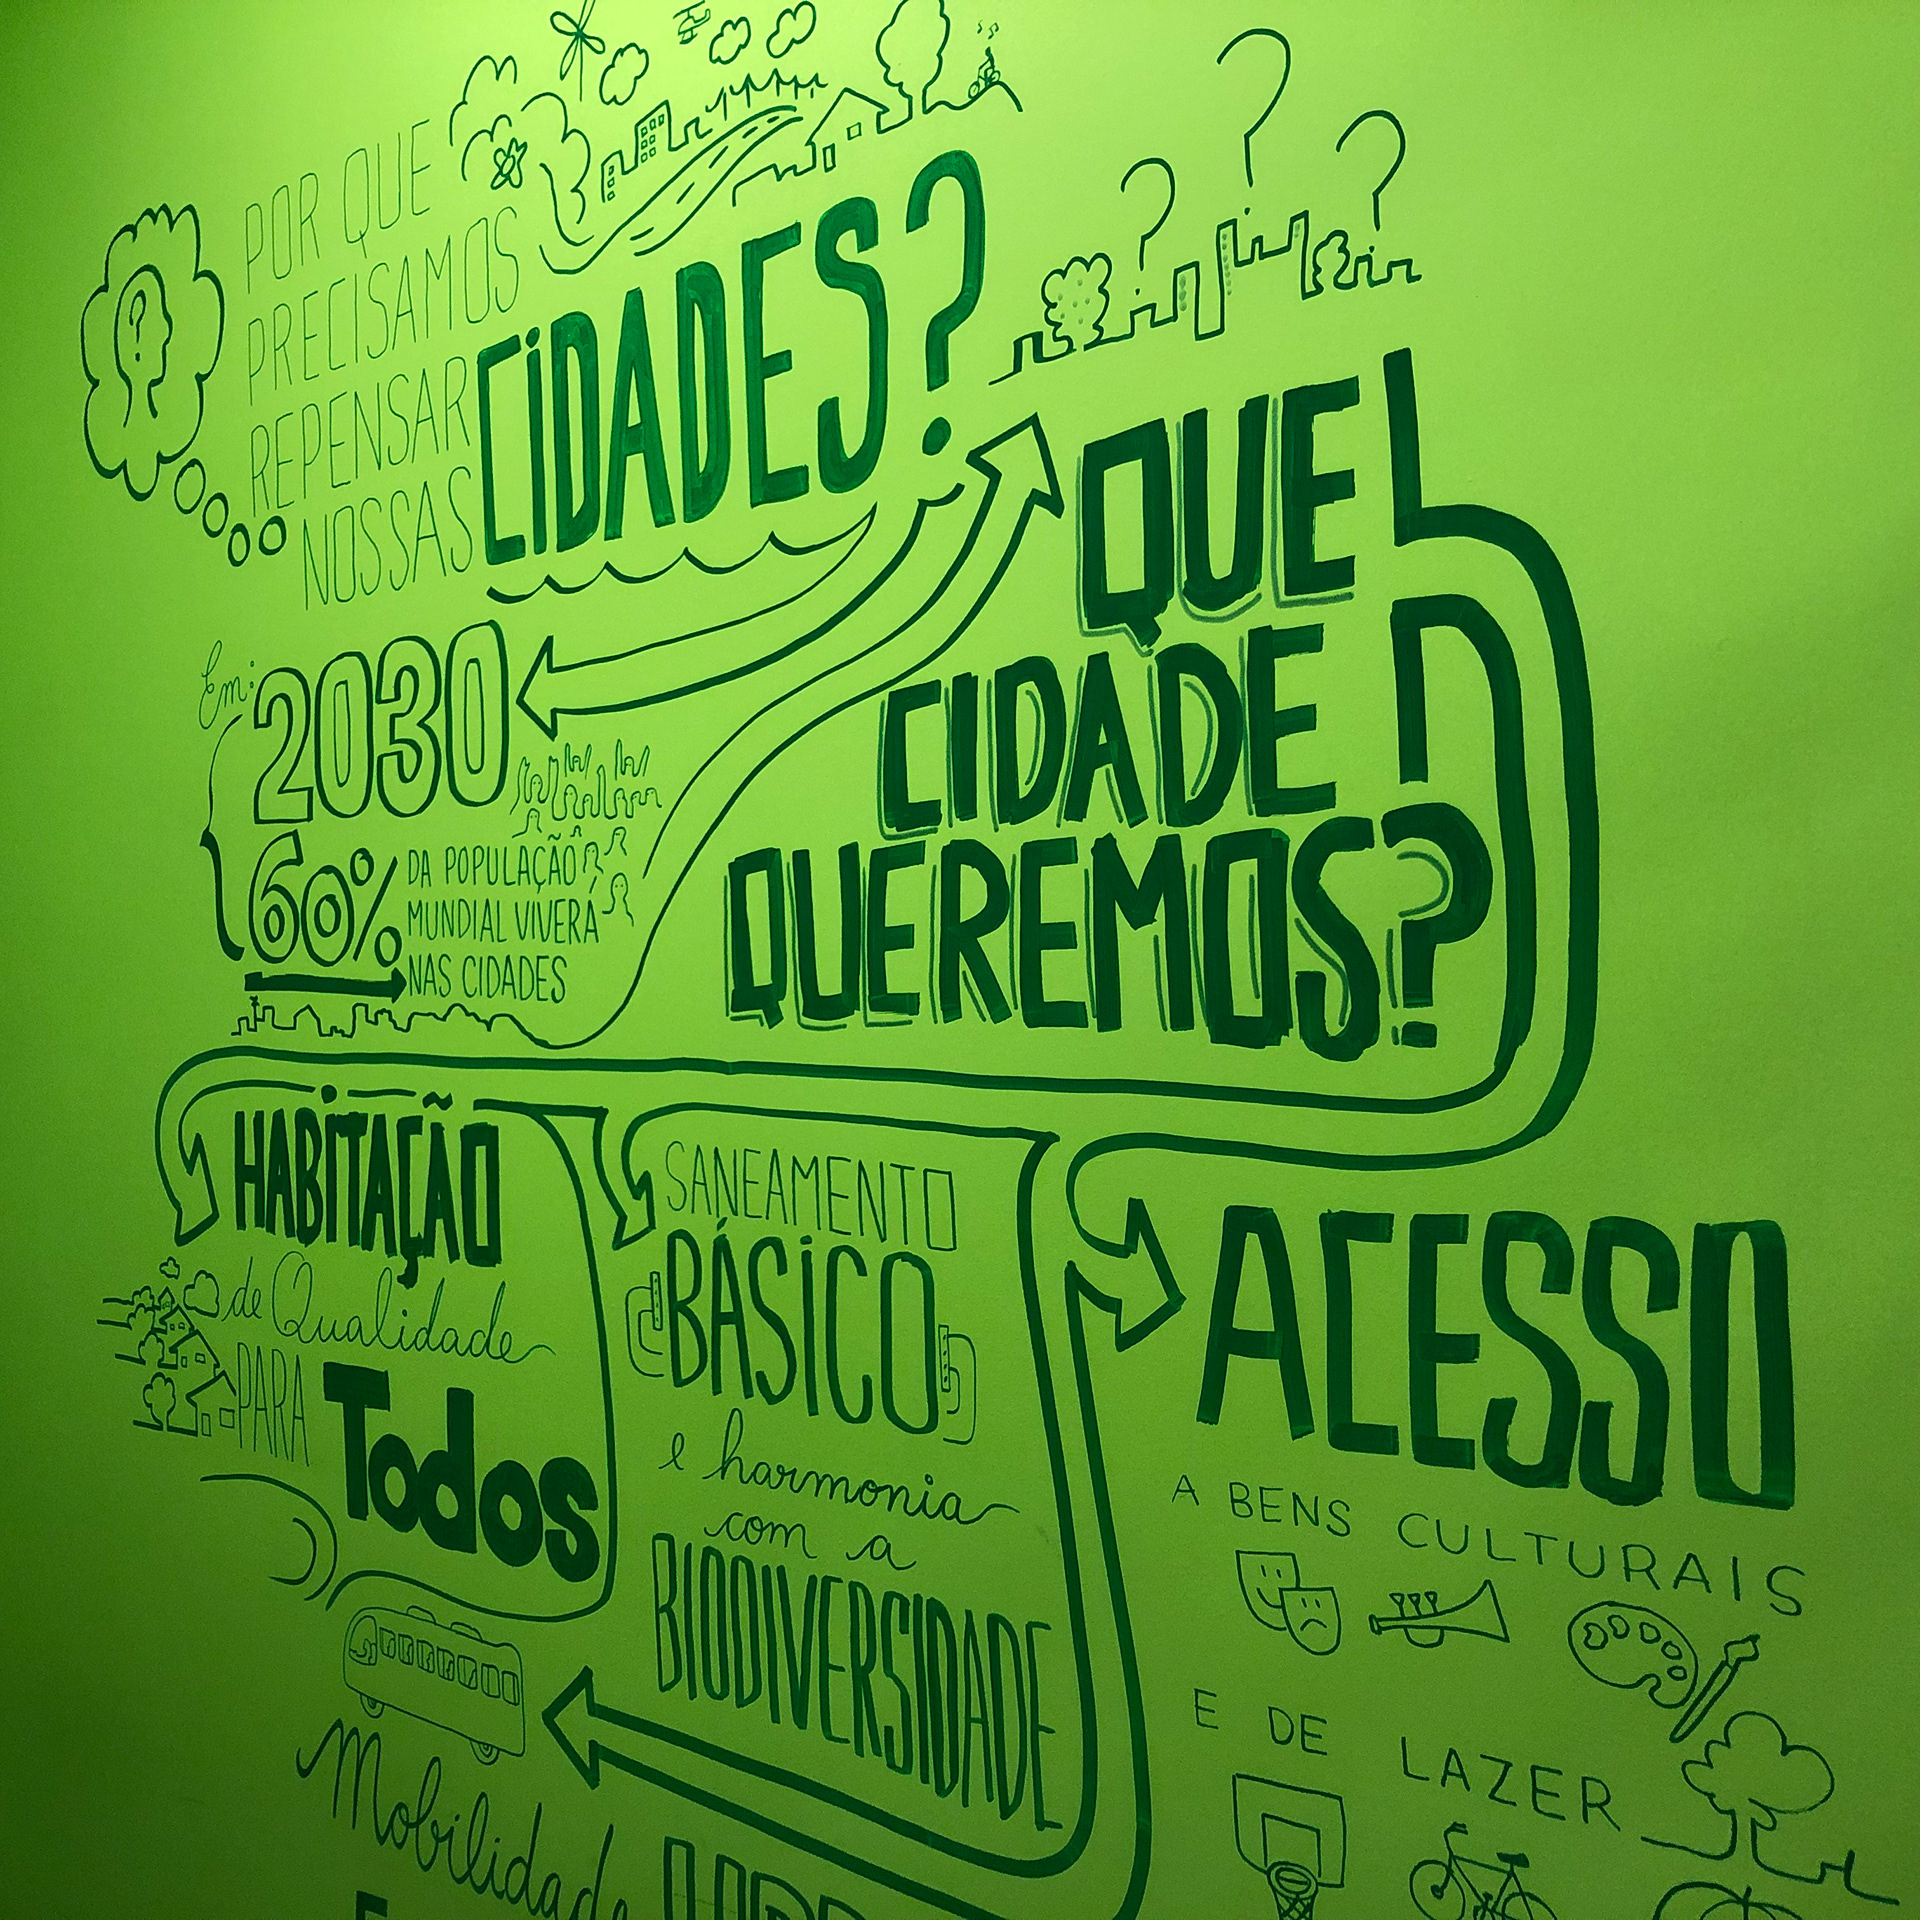 POR QUE
PRECISAMOS
REPENSAR
NOSSAS
CIDADES?
Em:
2030
60%
DA POPULAÇÃO
MUNDIAL VIVERÁ
NAS CIDADES
QUE
CIDADE
QUEREMOS?
HABITAÇÃO
de Qualidade
PARA
Todos
SANEAMENTO
BÁSICO
e harmonia
com a
BIODIVERSIDADE
ACESSO
A BENS CULTURAIS
E DE LAZER
Mobilidade